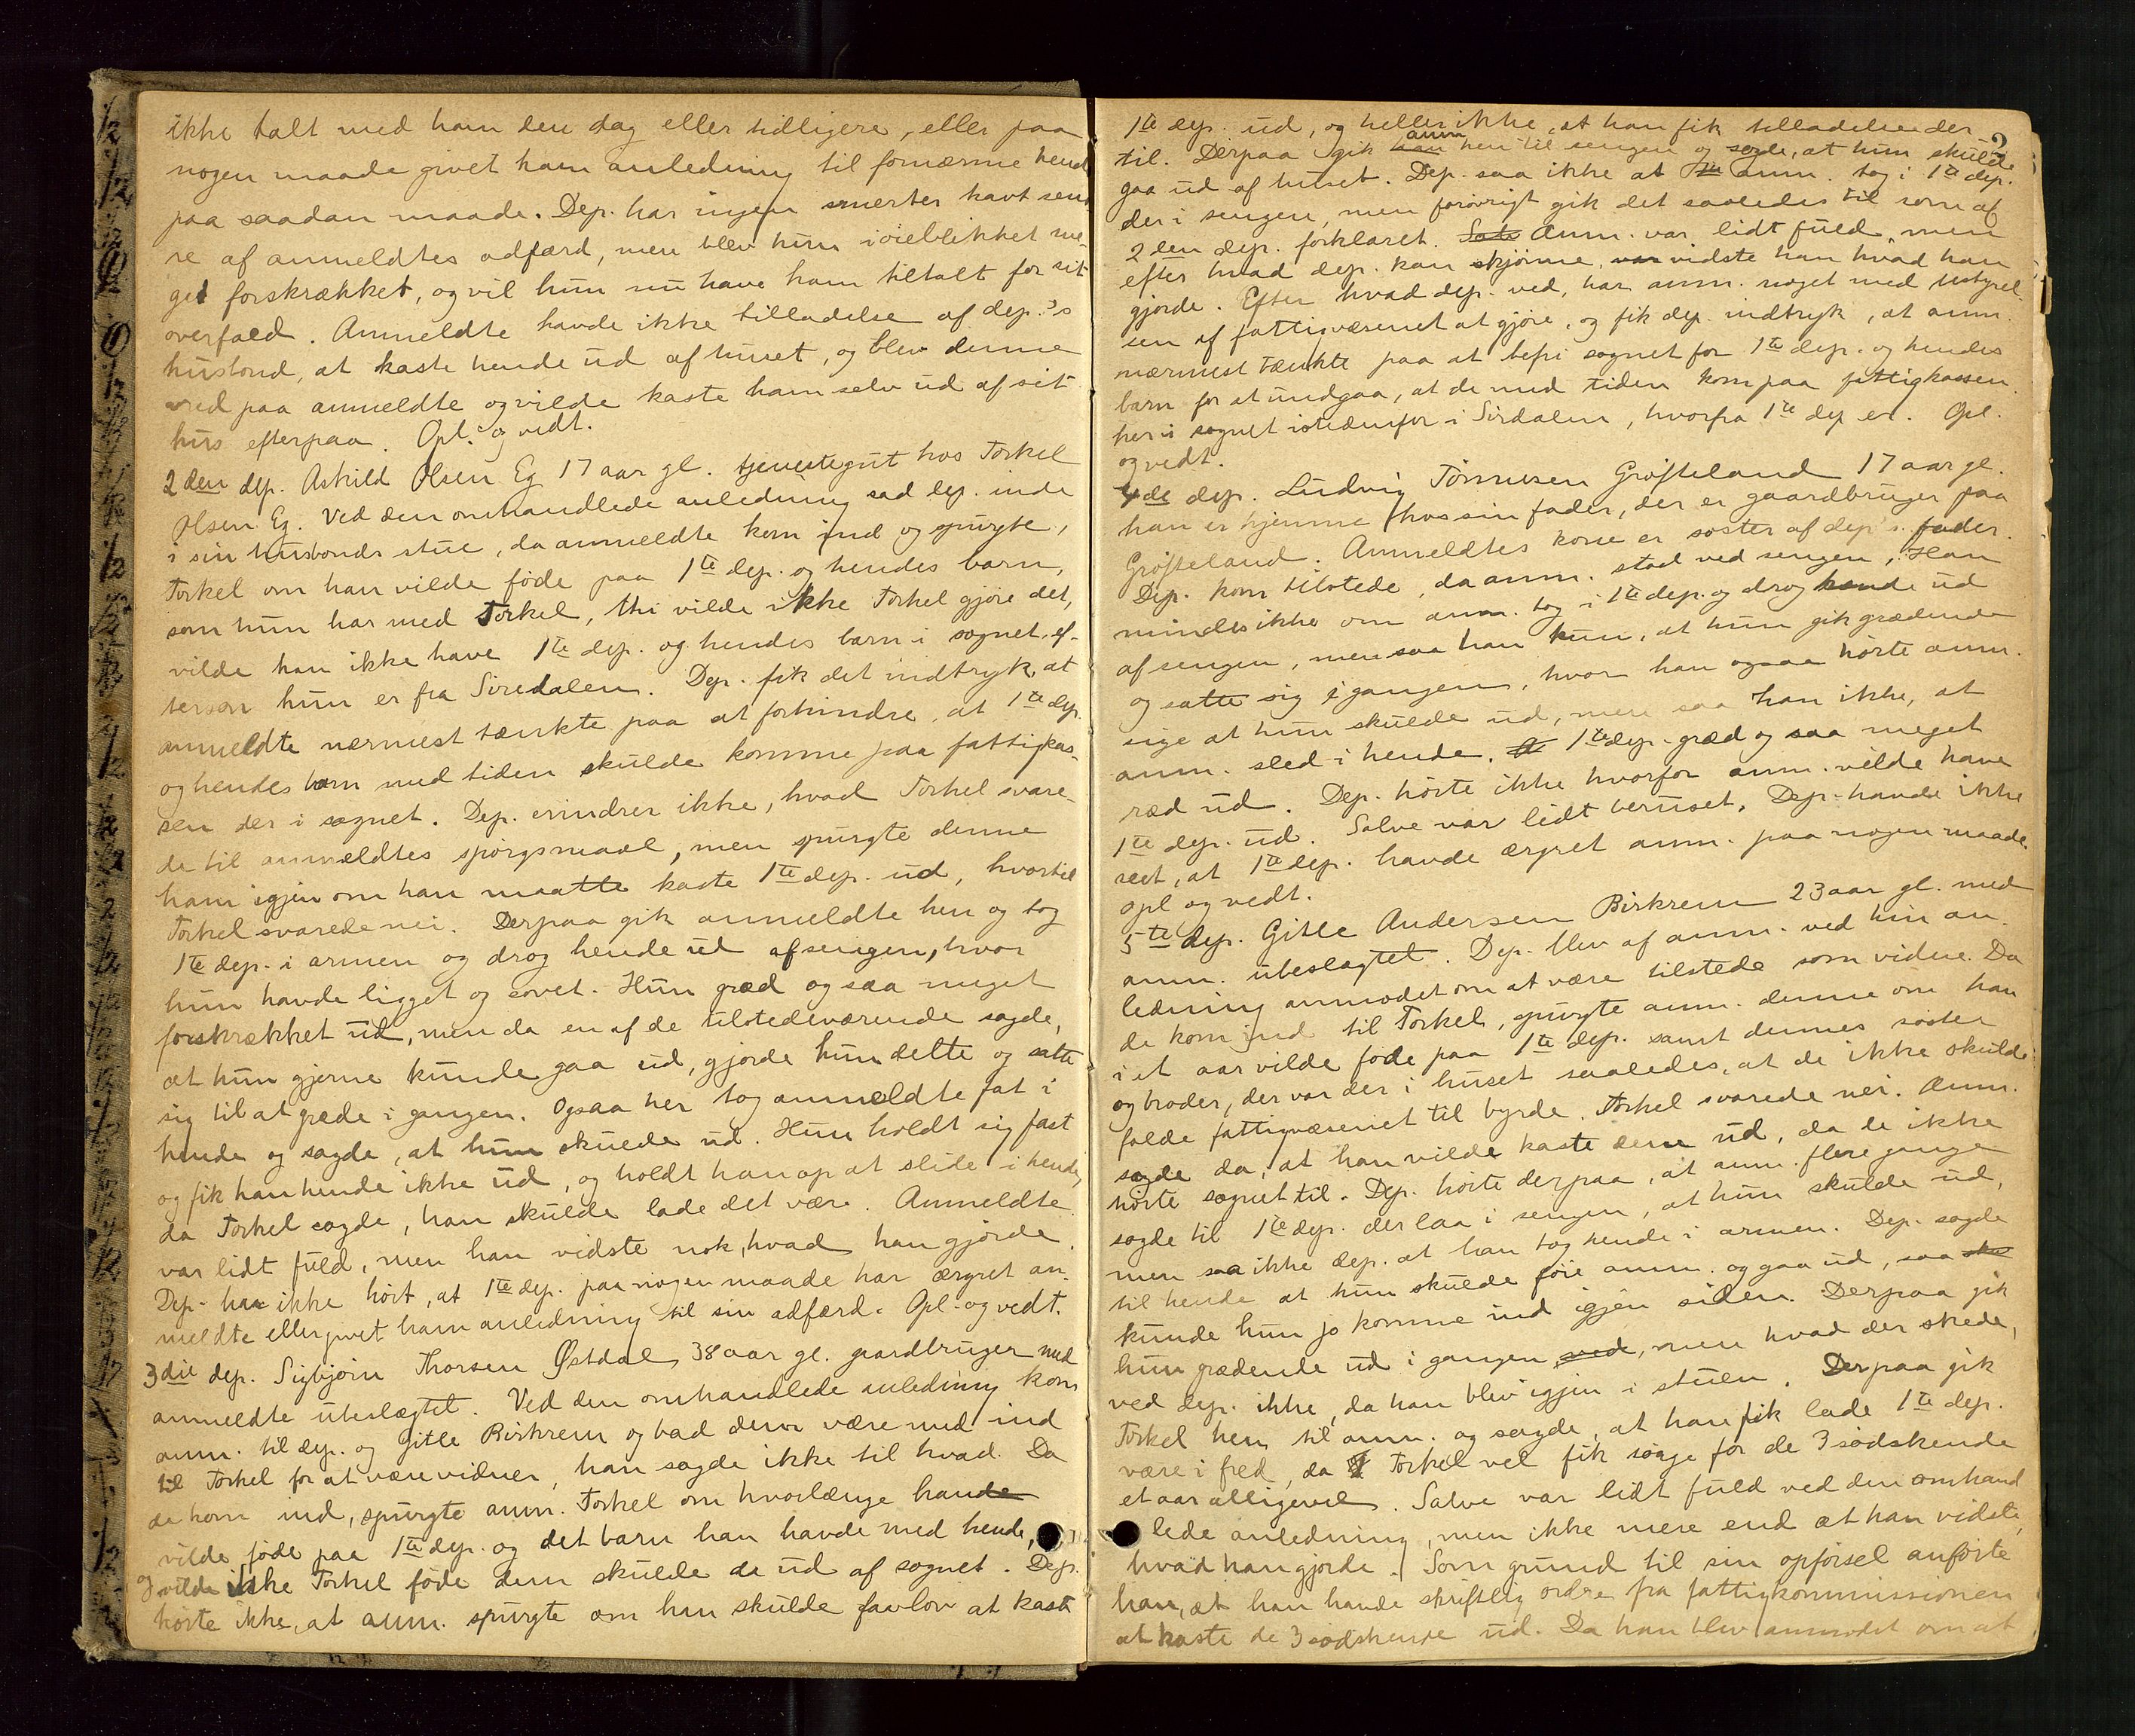 ikke talt med ham den dag eller tidligere, eller paa
nogen maade givet ham anledning til fornærme hende
paa saadan maade. Dep. har ingen smerter havt sene-
re af anmeldtes adfærd, men blev hun i øieblikket me-
get forskrækket, og vil hun nu have ham tiltalt for sit
overfald. Anmeldte havde ikke tilladelse af dep.'s
husbond, at kaste hende ud af huset, og blev denne
vred paa anmeldte og vilde kaste ham selv ud af sit
hus efterpaa. Opl. og vedt.
2den dep. Askild Olsen Eg 17 aar gl. tjenestegut hos Torkel
Olsen Eg. Ved den omhandlede anledning sad dep. inde
i sin husbonds stue, da anmeldte kom ind og spurgte,
Torkel om han vilde føde paa 1te dep. og hendes barn,
som hun har med Torkel, thi vilde ikke Torkel gjøre det,
vilde han ikke have 1te dep. og hendes barn i sognet, ef-
tersom hun er fra Siredalen. Dep. fik det indtryk, at
anmeldte nærmest tænkte paa at forhindre, at 1te dep.
og hendes barn med tiden skulde komme paa fattigkas-
sen der i sognet. Dep. erindrer ikke, hvad Torkel svare-
de til anmeldtes spørgsmaal, men spurgte denne
ham igjen om han maatte kaste 1te dep. ud, hvortil
Torkel svarede nei. Derpaa gik anmeldte hen og tog
1te dep. i armen og drog hende ud af sengen, hvor
hun havde ligget og sovet. Hun græd og saa meget
forskrækket ud, men da en af de tilstedeværende sagde,
at hun gjerne kunde gaa ud, gjorde hun dette og satte
sig til at græde i gangen. Ogsaa her tog anmeldte fat i
hende og sagde, at hun skulde ud. Hun holdt sig fast
og fik han hende ikke ud, og holdt han op at slide i hende,
da Torkel sagde, han skulde lade det være. Anmeldte
var lidt fuld, men han vidste nok, hvad han gjorde.
Dep. har ikke hørt, at 1te dep. paa nogen maade har ærgret an-
meldte eller givet ham anledning til sin adfærd. Opl. og vedt.
3die dep. Sigbjørn Thorsen Østdal 38 aar gl. gaardbruger med
anmeldte ubeslægtet. Ved den omhandlede anledning kom
anm. til dep. og Gitle Birkrem og bad dem være med ind
til Torkel for at være vidner, han sagde ikke til hvad. Da
de kom ind, spurgte anm. Torkel om hvorlænge hande
vilde føde paa 1te dep. og det barn han havde med hende,
og vilde ikke Torkel føde dem skulde de ud af sognet. Dep.
hørte ikke, at anm. spurgte om han skulde faa lov at kaste
1te dep. ud, og heller ikke, at han fik tilladelse der
til. Derpaa gik han anm. hen til sengen og sagde, at hun skulde
gaa ud af huset. Dep. saa ikke at anm. tog i 1te dep.
der i sengen, men forøvrigt gik det saaledes til som af
2den dep. forklaret. Anm. var lidt fuld, men
efter hvad dep. kan skjønne, var vidste han hvad han
gjorde. Efter hvad dep. ved, har anm. noget med bestyrel
sen af fattigvæsenet at gjøre, og fik dep. indtryk, at anm.
nærmest tænkte paa at befri sognet for 1te dep. og hendes
barn for at undgaa, at de med tiden kom paa fattigkassen
her i sognet istedenfor i Sirdalen, hvorfra 1te dep er. Opl.
og vedt.
4de dep. Ludvig Tønnesen Grøfteland 17 aar gl.
han er hjemme hos sin fader, der er gaardbruger paa
Grøfteland. Anmeldtes kone er søster af dep's. fader.
Dep. kom tilstede, da anm. stod ved sengen, Han
mindes ikke om anm. tog i 1te dep. og drog hende ud
af sengen, men saa han kun, at hun gik grædende
og satte sig i gangen, hvor han ogsaa hørte anm.
sige at hun skulde ud, men saa han ikke, at
anm. sled i hende. 1te dep. græd og saa meget
ræd ud. Dep. hørte ikke hvorfor anm. vilde have
1te dep. ud. Salve var lidt beruset. Dep. havde ikke
seet, at 1te dep. havde ærgret anm. paa nogen maade.
Opl og vedt.
5te dep. Gitle Andersen Birkrem 23 aar gl. med
anm. ubeslægtet. Dep. blev af anm. ved hin an-
ledning anmodet om at være tilstede som vidne. Da
de kom ind til Torkel, spurgte anm. denne om han
i et aar vilde føde paa 1te dep. samt dennes søster
og broder, der var der i huset saaledes, at de ikke skulde
falde fattigvæsenet til byrde. Torkel svarede nei. Anm.
sagde da, at han vilde kaste dem ud, da de ikke
hørte sognet til. Dep. hørte derpaa, at anm. flere gange
sagde til 1te dep. der laa i sengen, at hun skulde ud,
men saa ikke dep. at han tog hende i armen. Dep. sagde
til hende at hun skulde føie anm. og gaa ud, saa sku
kunde hun jo komme ind igjen siden. Derpaa gik
hun grædende ud i gangen, men hvad der skede,
ved dep. ikke, da han blev igjen i stuen. Derpaa gik
Torkel hen til anm. og sagde, at han fik lade 1te dep.
være i fred, da Torkel vel fik sørge for de 3 sødskende
et aar alligevel. Salve var lidt fuld ved den omhand
lede anledning, men ikke mere end at han vidste,
hvad han gjorde. Som grund til sin opførsel anførte
han, at han havde skriftlig ordre fra fattigkommissionen
at kaste de 3 sødskende ud. Da han blev anmodet om at